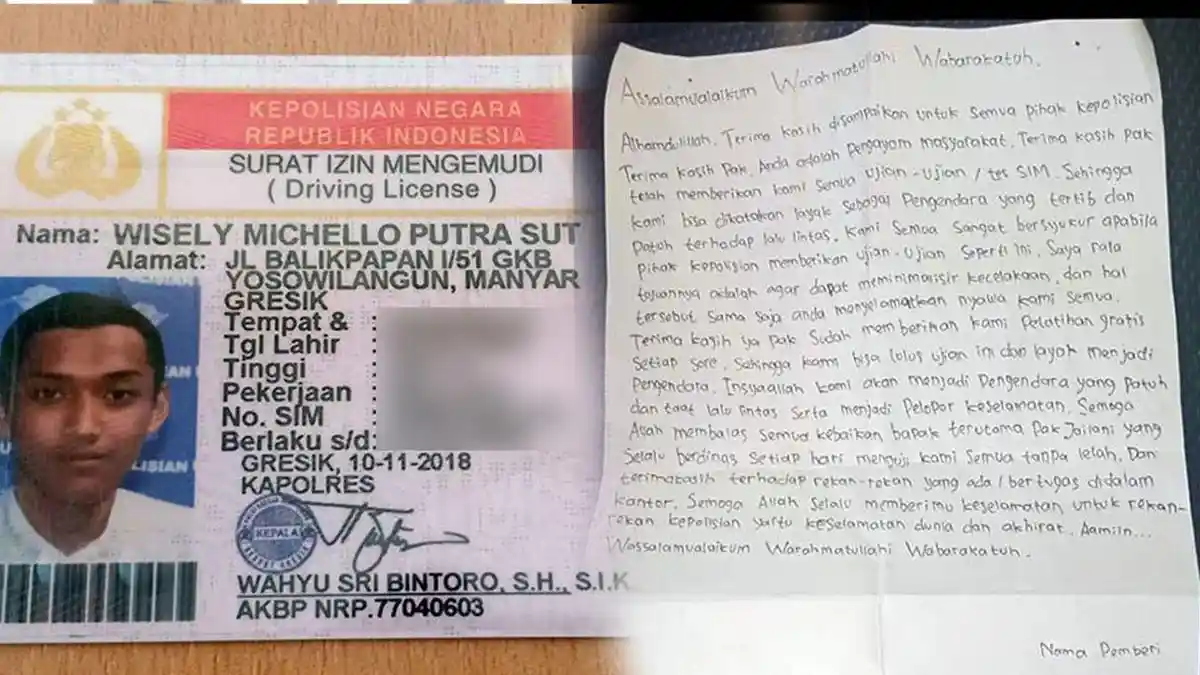 KEPOLISIAN NEGARA
REPUBLIK INDONESIA
SURAT IZIN MENGEMUDI
( Driving License )
Nama: WISELY MICHELLO PUTRA SUT
Alamat: JL BALIKPAPAN I/51 GKB
YOSOWILANGUN, MANYAR
GRESIK
Tempat & :
Tgl Lahir :
Tinggi :
Pekerjaan :
No. SIM :
Berlaku s/d:
GRESIK, 10-11-2018
KAPOLRES
KEPALA
WAHYU SRI BINTORO, S.H., S.I.K
AKBP NRP.77040603
Assalamualaikum Warahmatullahi Wabarakatuh.
Alhamdulillah. Terima kasih disampaikan untuk semua pihak kepolisian
Terima kasih pak, Anda adalah pengayom masyarakat. Terima kasih pak
telah memberikan kami semua ujian-ujian / tes SIM. Sehingga
kami bisa dikatakan layak sebagai pengendara yang tertib dan
patuh terhadap lalu lintas. Kami semua sangat bersyukur apabila
pihak kepolisian memberikan ujian-ujian seperti ini. Saya rasa
tujuannya adalah agar dapat meminimalisir kecelakaan, dan hal
tersebut sama saja anda menyelamatkan nyawa kami semua.
Terima kasih ya pak sudah memberikan kami pelatihan gratis
setiap sore. Sehingga kami bisa lolos ujian ini dan layak menjadi
pengendara. Insyaallah kami akan menjadi pengendara yang patuh
dan taat lalu lintas serta menjadi pelopor keselamatan. Semoga
Allah membalas semua kebaikan bapak terutama Pak Jailani yang
selalu berdinas setiap hari menguji kami semua tanpa lelah. Dan
terimakasih terhadap rekan-rekan yang ada / bertugas didalam
kantor. Semoga Allah selalu memberimu keselamatan untuk rekan-
rekan kepolisian yaitu keselamatan dunia dan akhirat. Aamiin...
Wassalamualaikum Warahmatullahi Wabarakatuh.
Nama Pemberi